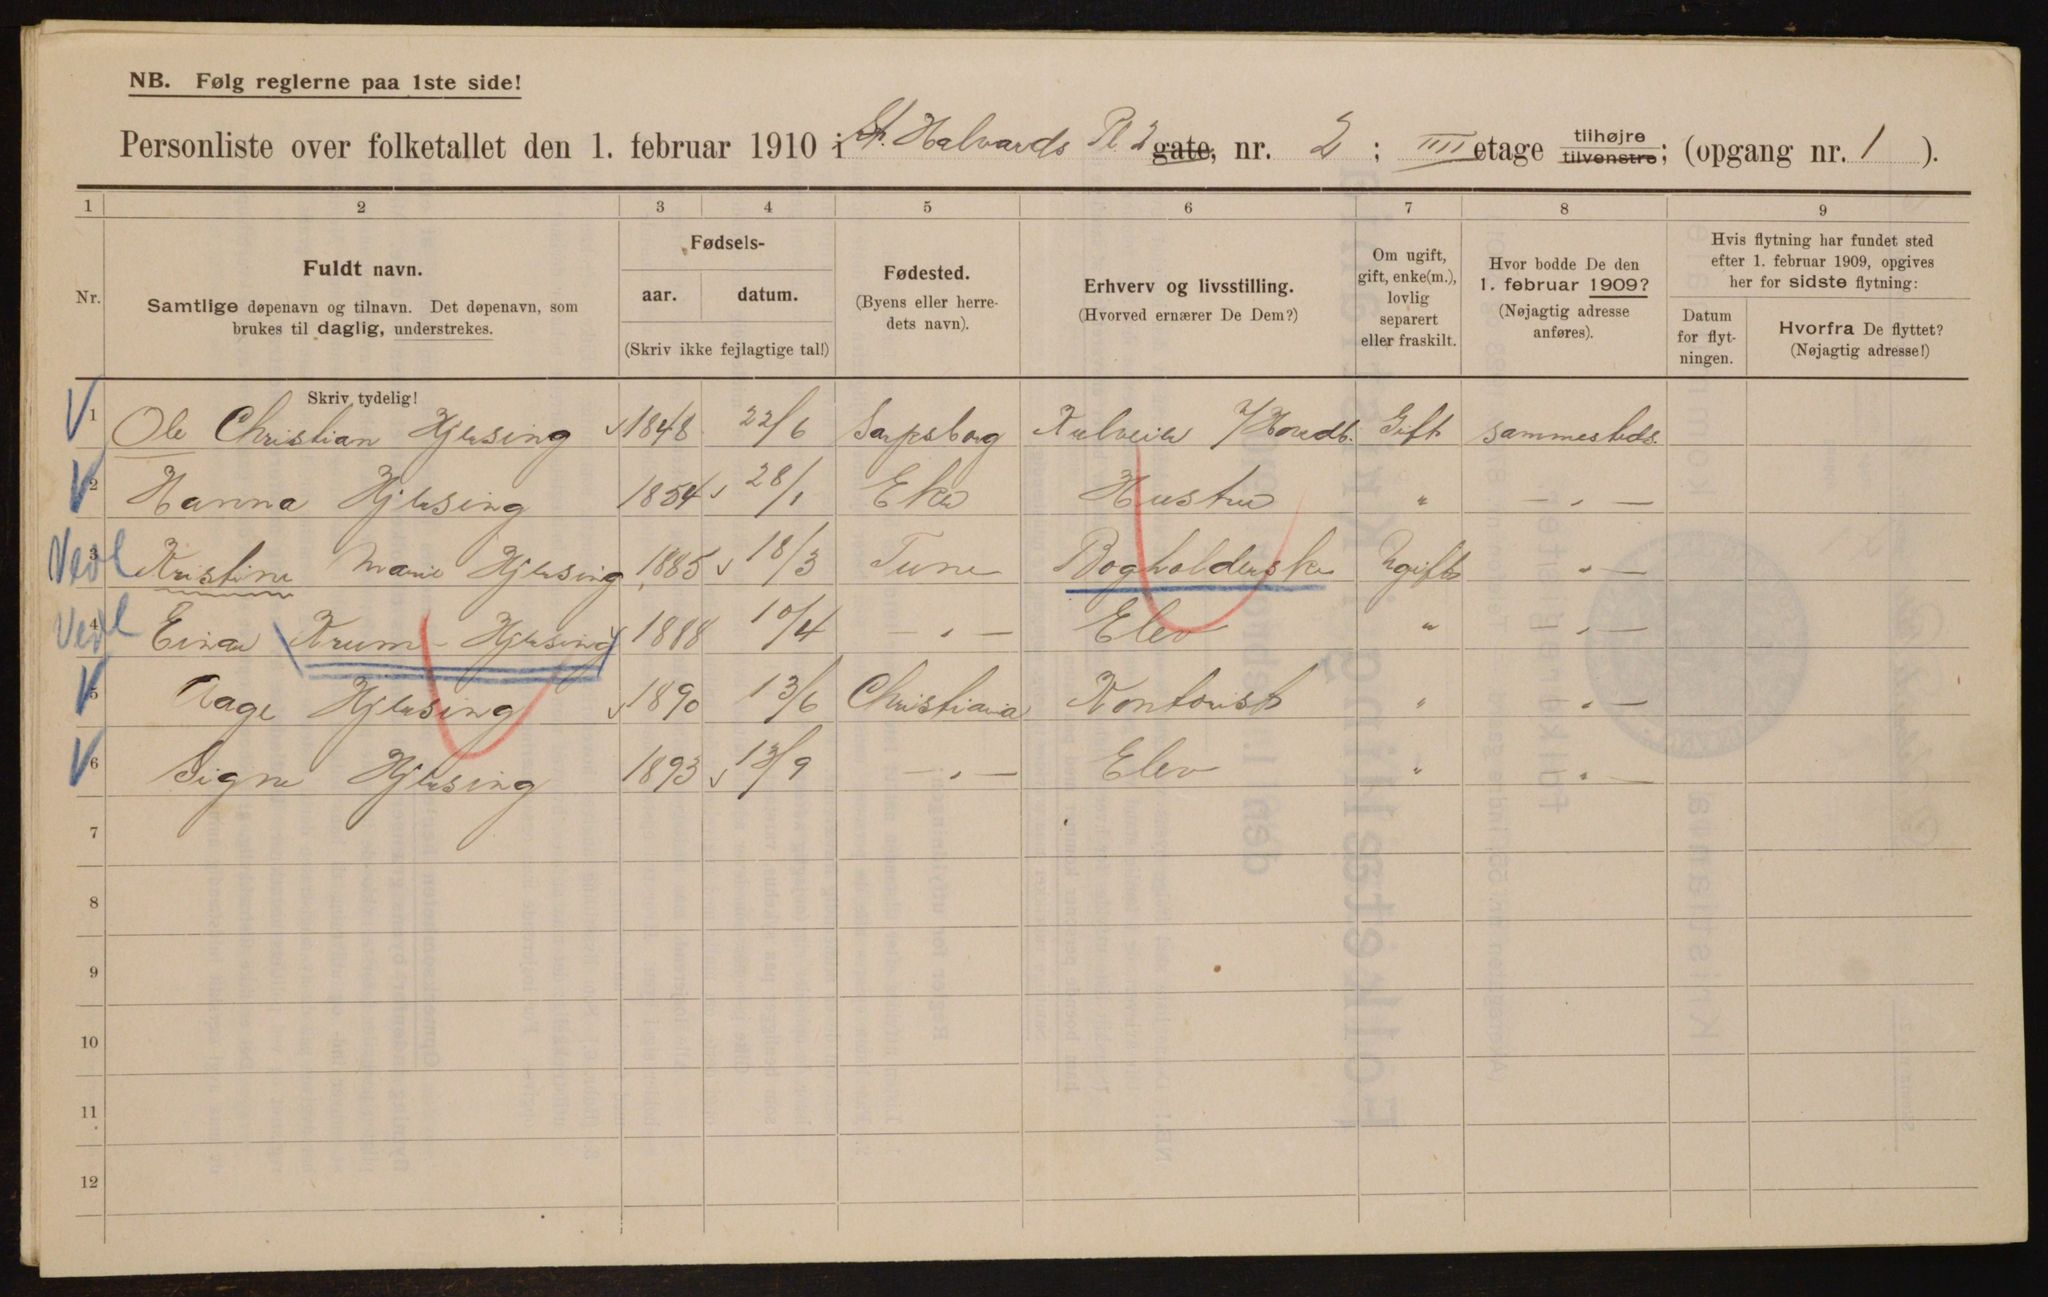 NB. Følg reglerne paa 1ste side!
Personliste over folketallet den 1. februar 1910 i St. Halvards Pl 2 gate, nr. 2 ; IIII etage tilhøjre tilvenstre; (opgang nr. 1 ).
1 2 3 4 5 6 7 8 9
Nr.
Fuldt navn.
Samtlige døpenavn og tilnavn. Det døpenavn, som
brukes til daglig, understrekes.
Fødsels-
aar. datum.
(Skriv ikke fejlagtige tal!)
Fødested.
(Byens eller herre-
dets navn).
Erhverv og livsstilling.
(Hvorved ernærer De Dem?)
Om ugift,
gift, enke(m.),
lovlig
separert
eller fraskilt.
Hvor bodde De den
1. februar 1909?
(Nøjagtig adresse
anføres).
Hvis flytning har fundet sted
efter 1. februar 1909, opgives
her for sidste flytning:
Datum
for flyt-
ningen.
Hvorfra De flyttet?
(Nøjagtig adresse!)
Skriv tydelig!
1 Ole Christian Hjelsing 1848 22/6 Sarpsborg Gift sammesteds.
2 Hanna Hjelsing 1854 28/1 Eker Hustru " — " —
Vedl 3 Kristine Marie Hjelsing 1885 18/3 Tune Bogholderske Ugift " —
Vedl 4 Einar Krum-Hjelsing 1888 10/4 — " — Elev " " —
5 Aage Hjelsing 1890 13/6 Christiania Kontorist " " —
6 Signe Hjelsing 1893 13/9 — " — Elev " " —
7
8
9
10
11
12